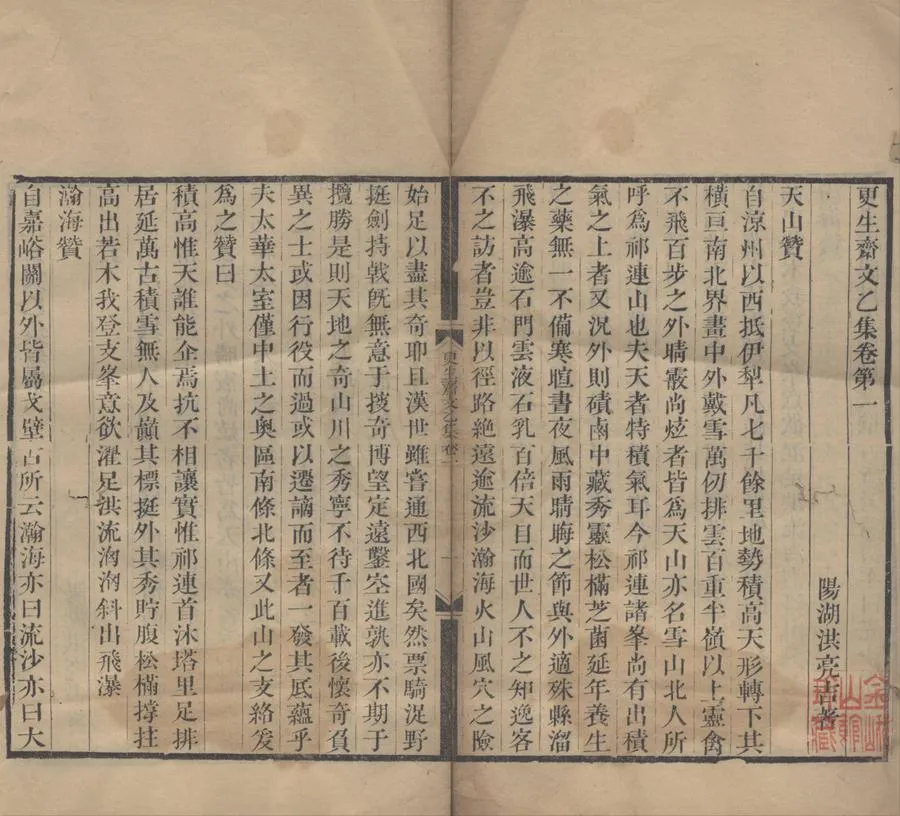 更生齋文乙集卷第一
陽湖洪亮吉著
天山贊
自涼州以西抵伊犁凡七千餘里地勢積高天形轉下其
橫亘南北界畫中外戴雪萬仞排雲百重半嶺以上靈禽
不飛百步之外晴霰尚炫者皆爲天山亦名雪山北人所
呼爲祁連山也夫天者特積氣耳今祁連諸峯尚有出積
氣之上者又況外則磧鹵中藏秀靈松樠芝菌延年養生
之藥無一不備寒暄晝夜風雨晴晦之節與外適殊縣溜
飛瀑高逾石門雲液石乳百倍天目而世人不之知逸客
不之訪者豈非以徑路絶遠逾流沙瀚海火山風穴之險
始足以盡其奇耶且漢世雖嘗通西北國矣然票騎浞野
挺劍持戟旣無意于搜奇博望定遠鑿空進孰亦不期于
攬勝是則天地之奇山川之秀寧不待千百載後懷奇負
異之士或因行役而過或以遷謫而至者一發其底蘊乎
夫太華太室僅中土之奧區南條北條又此山之支絡爰
爲之贊曰
積高惟天誰能企焉抗不相讓實惟祁連首沐塔里足排
居延萬古積雪無人及巔其標挺外其秀貯腹松樠撐拄
高出若木我登支峯意欲濯足洪流洶洶斜出飛瀑
瀚海贊
自嘉峪關以外皆屬戈壁古所云瀚海亦曰流沙亦曰大
更生齋文乙集卷一
一